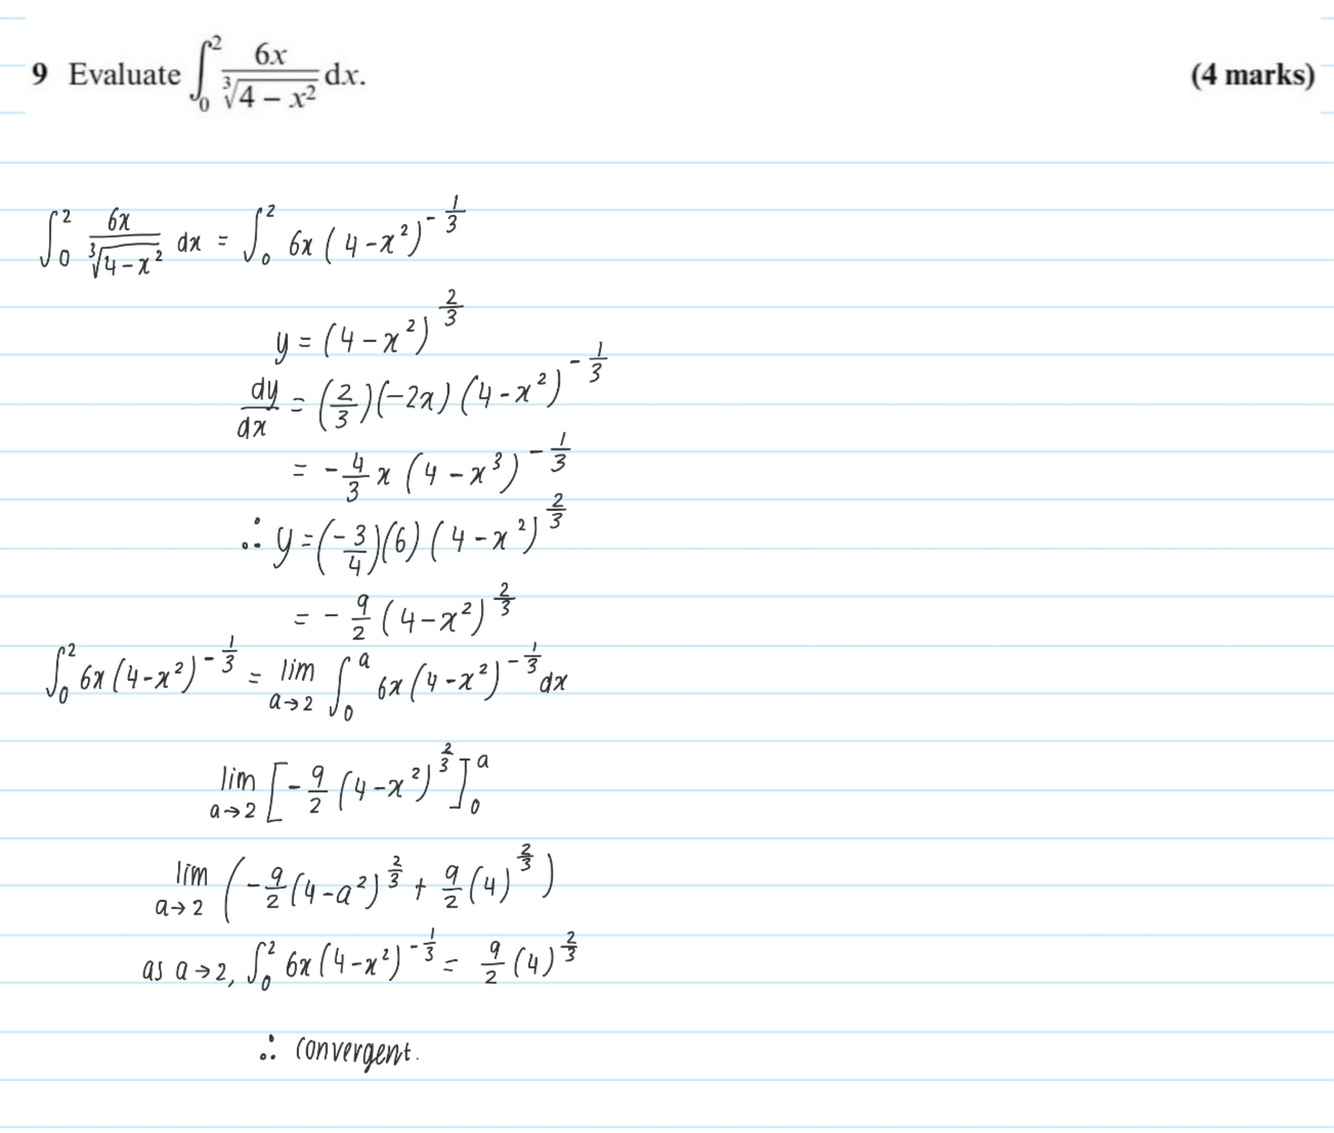 9 Evaluate ∫₀² 6x/∛(4 − x²) dx. (4 marks)
∫₀² 6x/∛(4−x²) dx = ∫₀² 6x(4−x²)^(−1/3)
y = (4−x²)^(2/3)
dy/dx = (2/3)(−2x)(4−x²)^(−1/3)
= −4/3 x (4−x³)^(−1/3)
∴ y = (−3/4)(6)(4−x²)^(2/3)
= −9/2 (4−x²)^(2/3)
∫₀² 6x(4−x²)^(−1/3) = lim a→2 ∫₀ᵃ 6x(4−x²)^(−1/3) dx
lim a→2 [−9/2 (4−x²)^(2/3)]₀ᵃ
lim a→2 (−9/2 (4−a²)^(2/3) + 9/2 (4)^(2/3))
as a→2, ∫₀² 6x(4−x²)^(−1/3) = 9/2 (4)^(2/3)
∴ convergent.